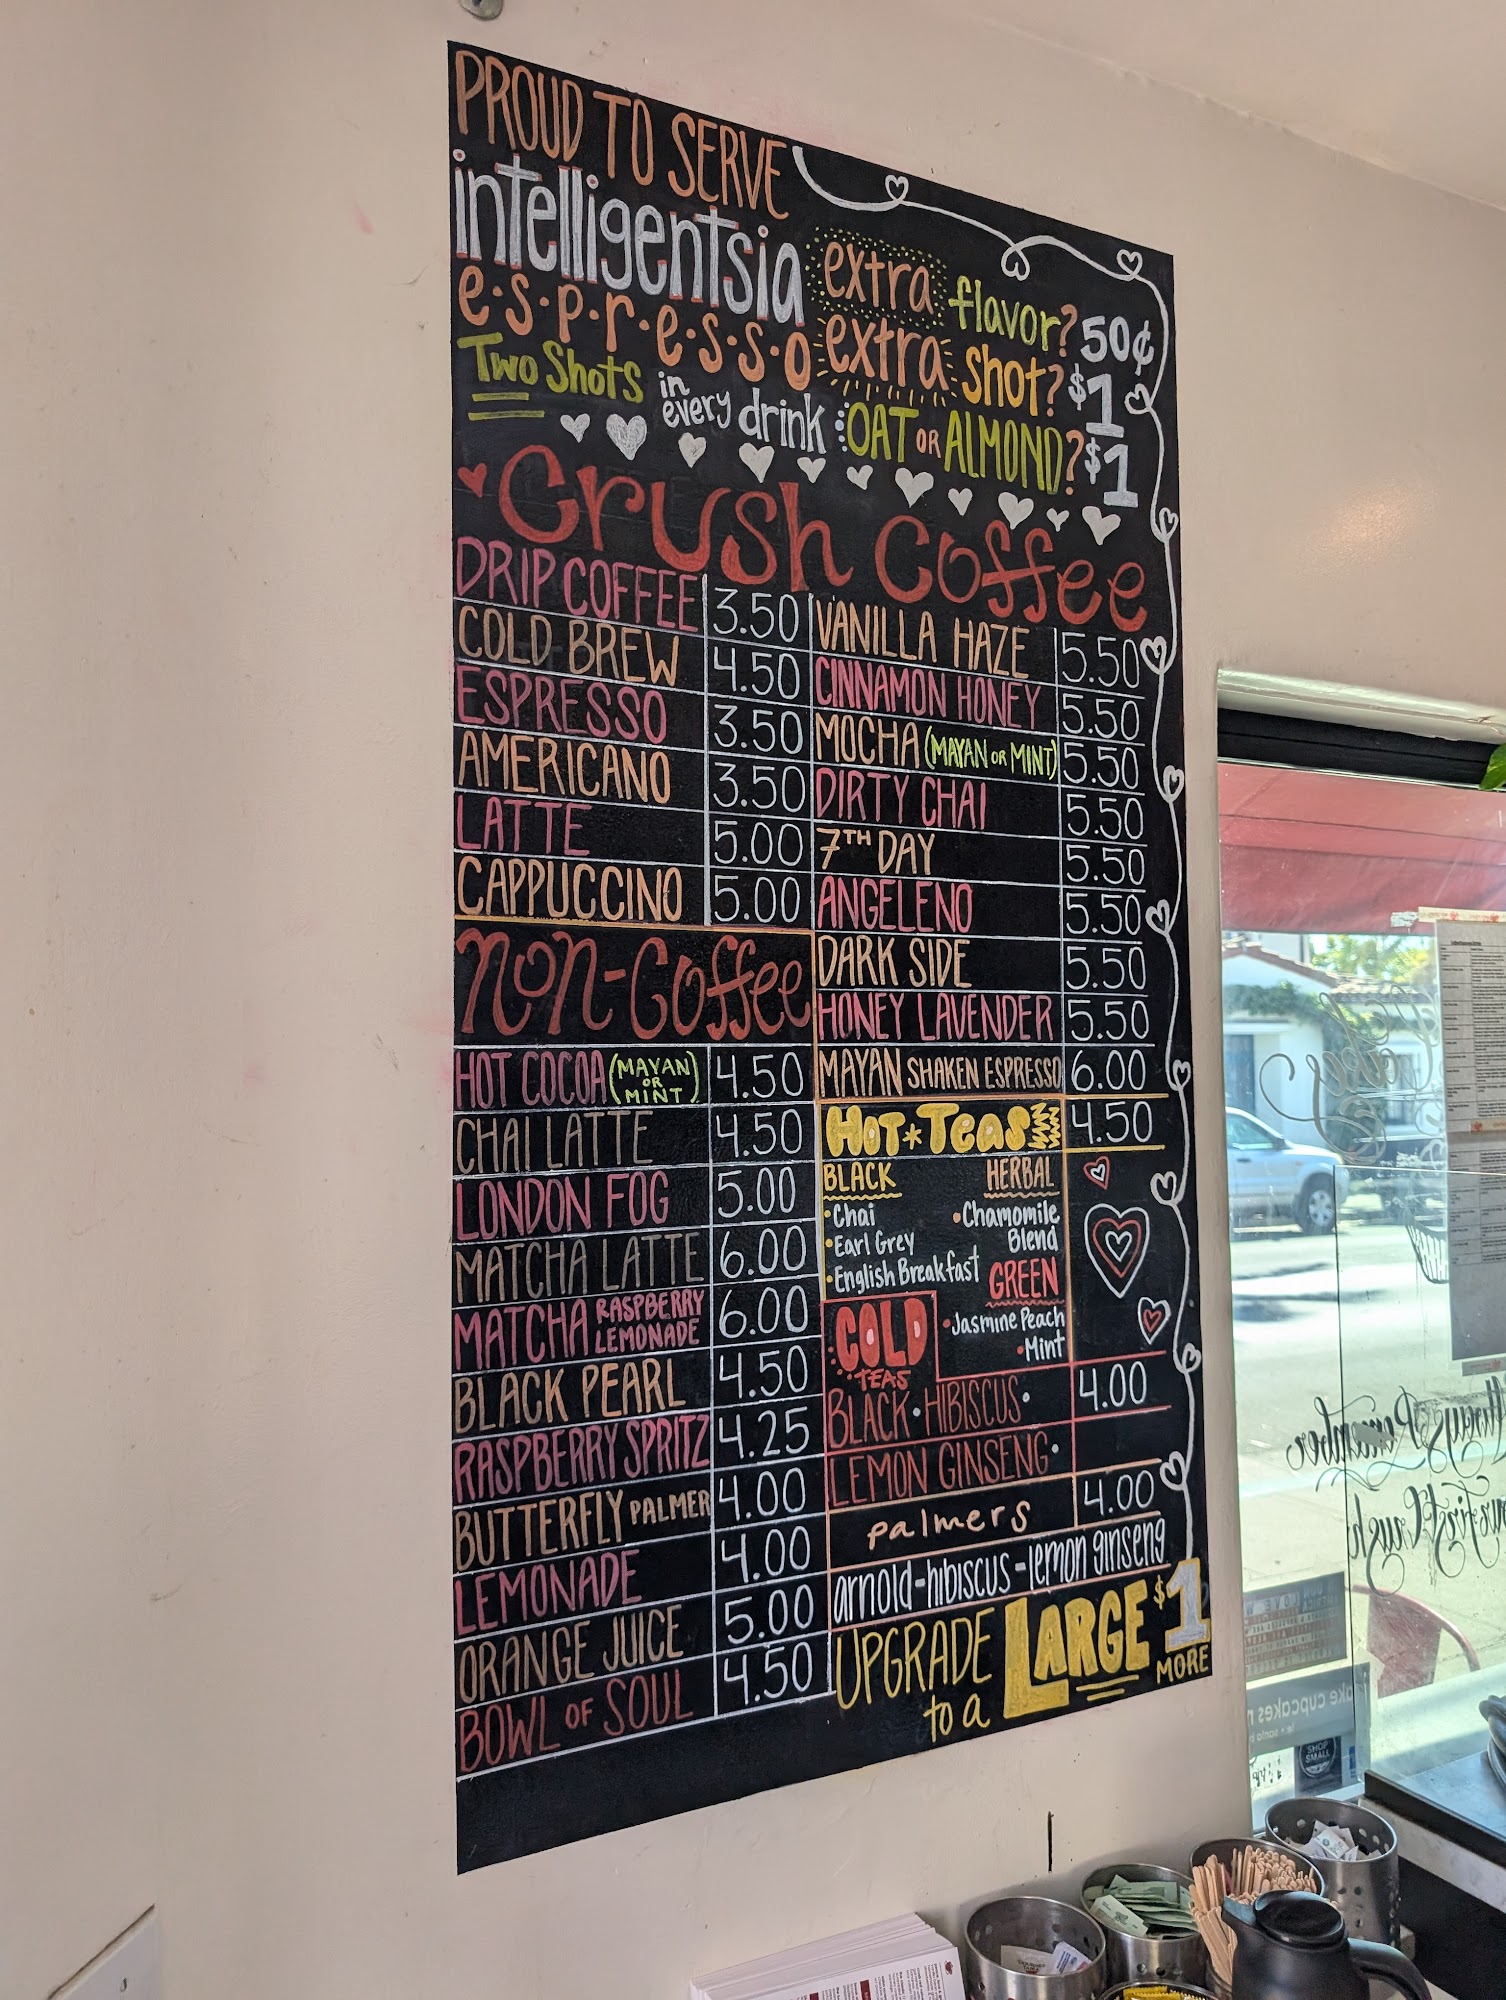 PROUD TO SERVE
intelligentsia
e·s·p·r·e·s·s·o
TWO SHOTS in every drink
extra flavor? 50¢
extra shot? $1
OAT OR ALMOND? $1
Crush Coffee
DRIP COFFEE 3.50
COLD BREW 4.50
ESPRESSO 3.50
AMERICANO 3.50
LATTE 5.00
CAPPUCCINO 5.00
VANILLA HAZE 5.50
CINNAMON HONEY 5.50
MOCHA (MAYAN OR MINT) 5.50
DIRTY CHAI 5.50
7TH DAY 5.50
ANGELENO 5.50
DARK SIDE 5.50
HONEY LAVENDER 5.50
MAYAN SHAKEN ESPRESSO 6.00
Non-Coffee
HOT COCOA (MAYAN OR MINT) 4.50
CHAI LATTE 4.50
LONDON FOG 5.00
MATCHA LATTE 6.00
MATCHA RASPBERRY LEMONADE 6.00
BLACK PEARL 4.50
RASPBERRY SPRITZ 4.25
BUTTERFLY PALMER 4.00
LEMONADE 4.00
ORANGE JUICE 5.00
BOWL OF SOUL 4.50
HOT * TEAS 4.50
BLACK
•Chai
•Earl Grey
•English Breakfast
HERBAL
•Chamomile Blend
GREEN
•Jasmine Peach
•Mint
COLD TEAS
BLACK • HIBISCUS • 4.00
LEMON GINSENG •
palmers 4.00
arnold-hibiscus-lemon ginseng
UPGRADE to a LARGE $1 MORE
Always Remember
your first Crush
SHOP SMALL